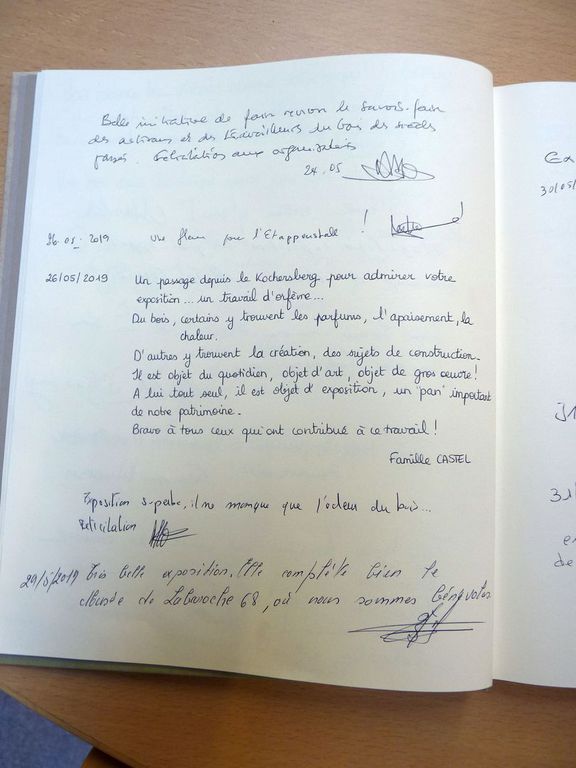 Belle initiative de faire revivre le savoir-faire
des artisans et des travailleurs du bois des siècles
passés. Félicitations aux organisateurs
24.05
26.05.2019 Une fleur pour l'Etappenstall !
26/05/2019 Un passage depuis le Kochersberg pour admirer votre
exposition... un travail d'orfèvre...
Du bois, certains y trouvent les parfums, l'apaisement, la
chaleur.
D'autres y trouvent la création, des sujets de construction.
Il est objet du quotidien, objet d'art, objet de gros oeuvre!
A lui tout seul, il est objet d'exposition, un "pan" important
de notre patrimoine.
Bravo à tous ceux qui ont contribué à ce travail !
Famille CASTEL
Exposition superbe, il ne manque que l'odeur du bois...
29/5/2019 Très belle exposition. Elle complète bien le
Musée de Labaroche 68, où nous sommes bénévoles
Ex
30/05/
31
31/
e
de